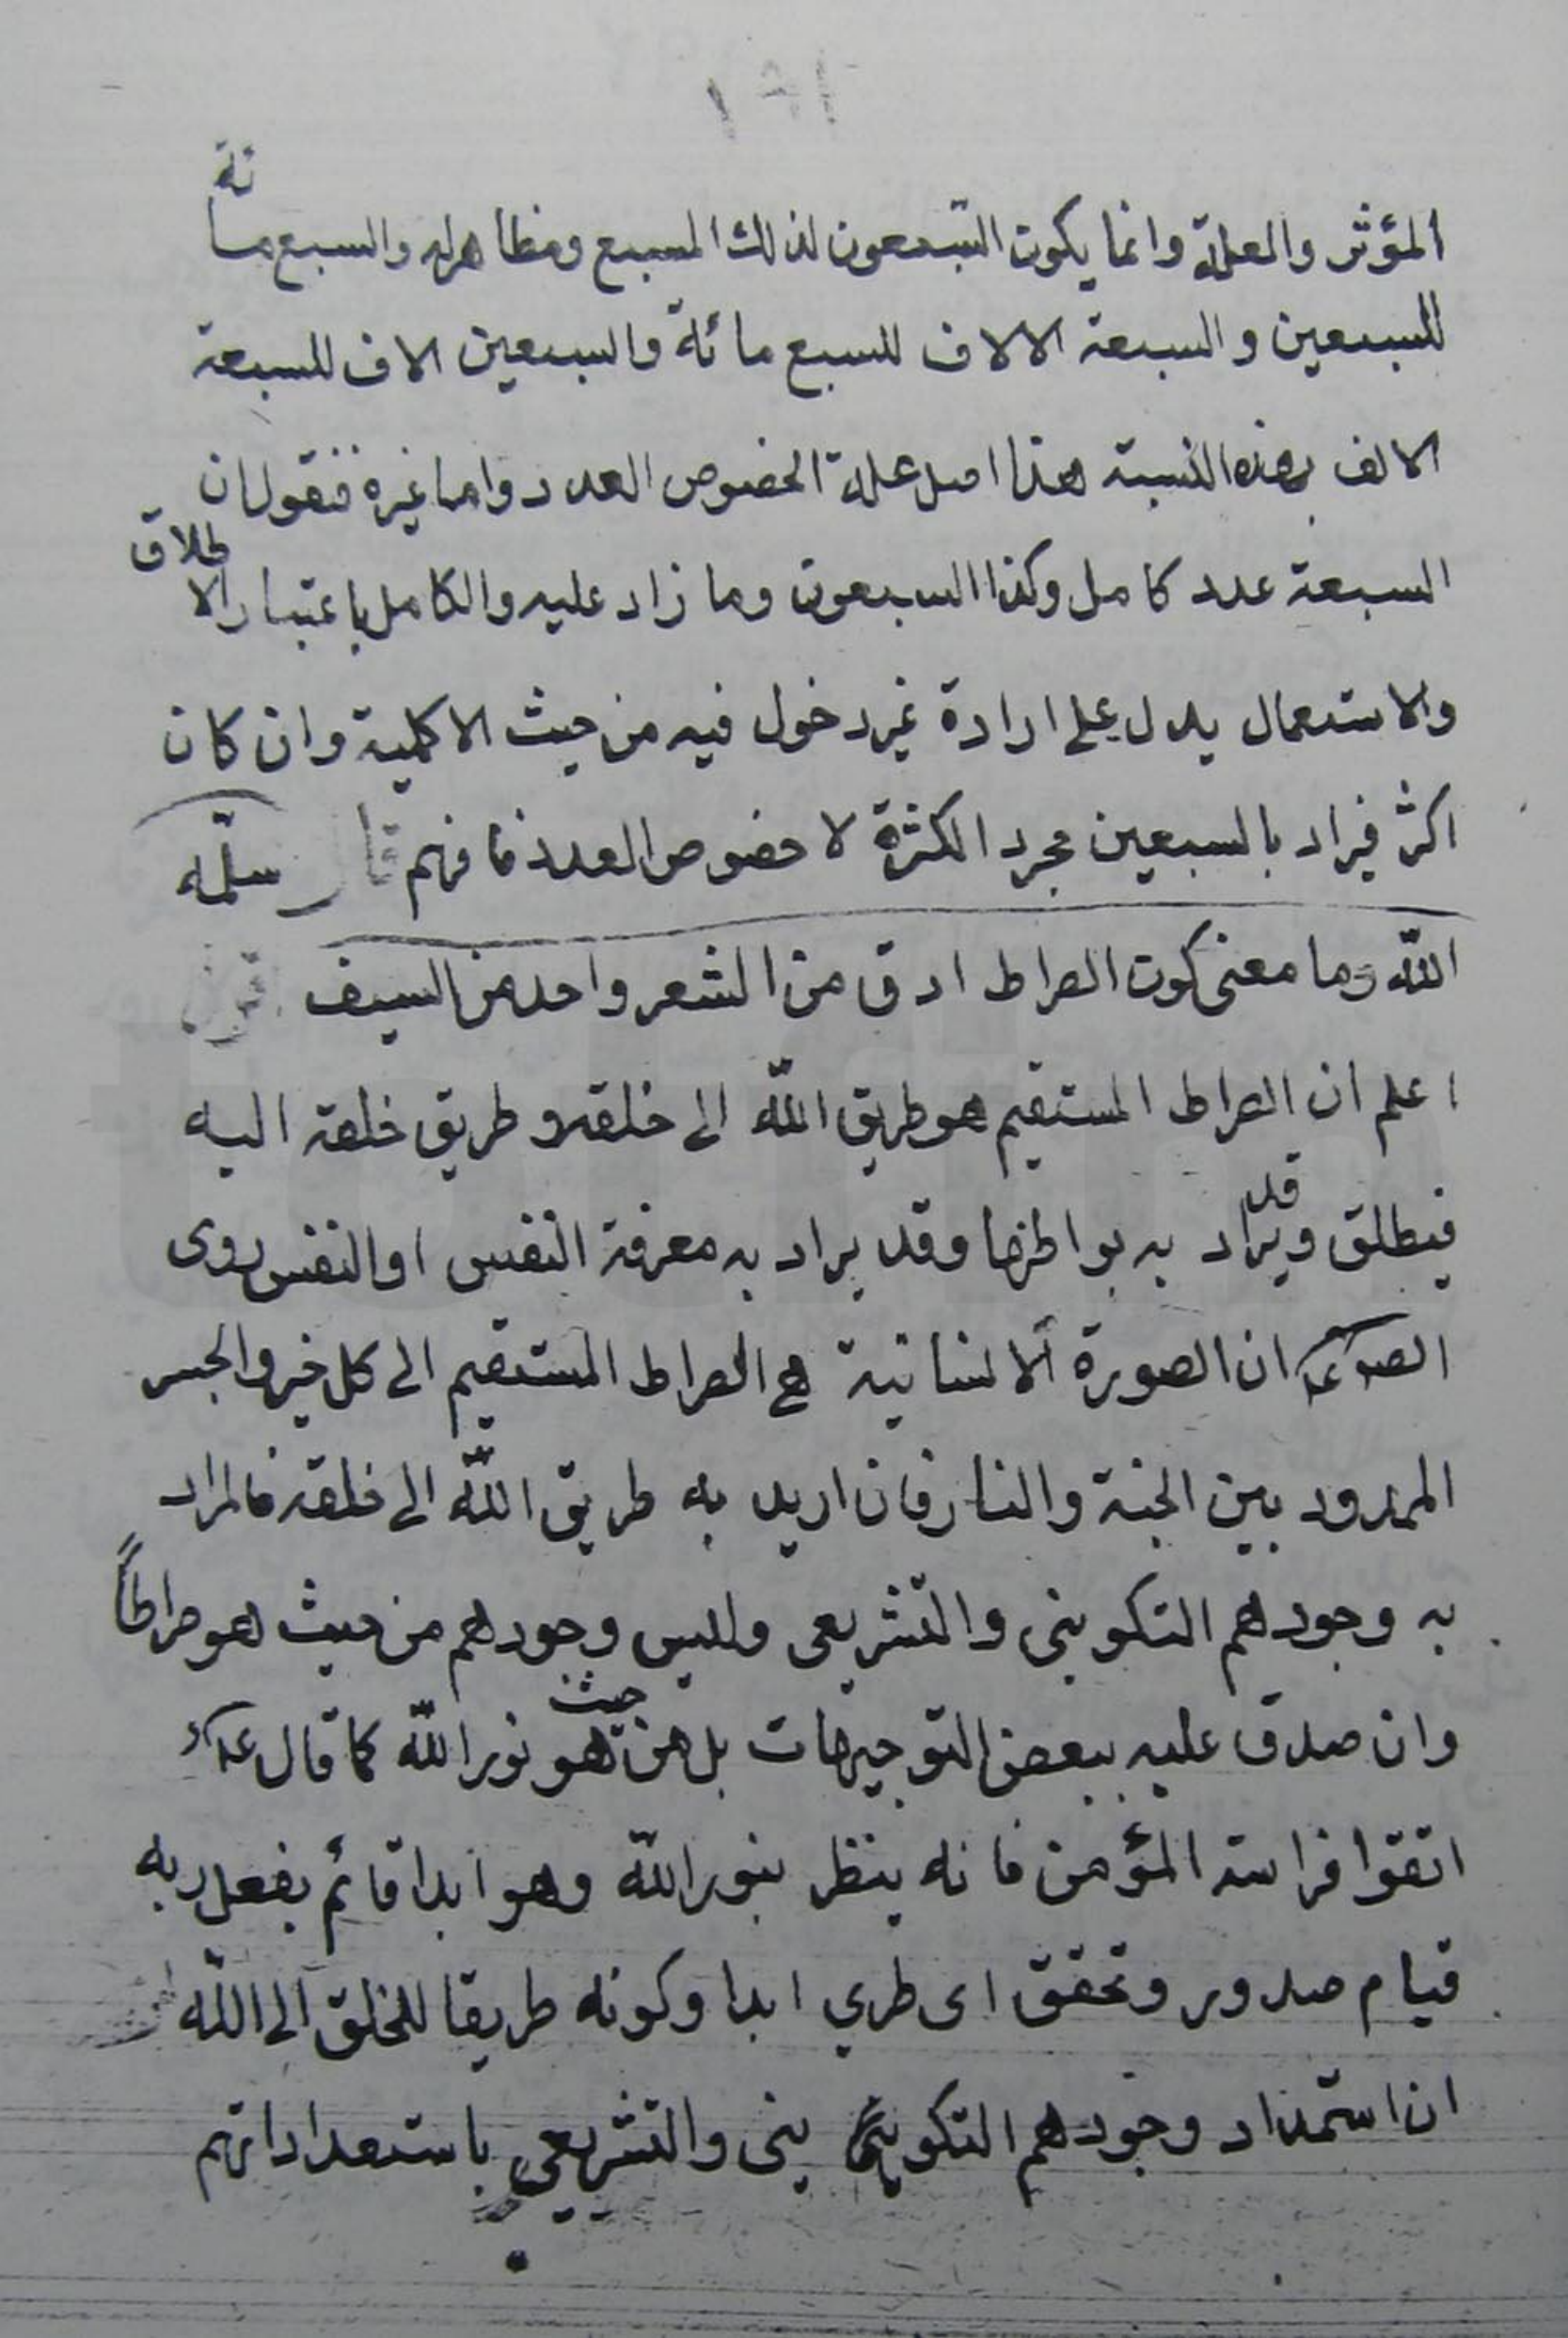 المؤثر والعلة وانما يكون السبعون لذلك السبع ومظاهراله والسبع مائة
للسبعين والسبعة الالاف للسبع مائة والسبعين الاف للسبعة
الالف بهذه النسبة هذا اصل علة الخصوص العدد واما غيره فنقول ان
السبعة عدد كامل وكذا السبعون وما زاد عليه والكامل باعتبار الاطلاق
والاستعمال يدل على ارادة غير دخول فيه من حيث الاكلمية وان كان
اكثر فيراد بالسبعين مجرد الكثرة لا خصوص العدد فافهم قال سلمه
الله وما معنى كون الصراط ادق من الشعر واحد من السيف
اعلم ان الصراط المستقيم هو طريق الله الى خلقه و طريق خلقه اليه
فيطلق وقد يراد به بواطنها وقد يراد به معرفة النفس او النفس روى
ان الصورة الانسانية هي الصراط المستقيم الى كل خير والجسر
الممدود بين الجنة والنار فان اريد به طريق الله الى خلقه فالمراد
به وجودهم التكويني والتشريعى وليس وجودهم من حيث هو صراطاً
وان صدق عليه ببعض التوجيهات بل من حيث هو نور الله كما قال ع
اتقوا فراسة المؤمن فانه ينظر بنور الله وهو ابدا قائم بفعل ربه
قيام صدور وتحقق اى طري ابدا وكونه طريقا للخلق الى الله
ان استمداد وجودهم التكوينى ينى والتشريعي باستعداداتهم